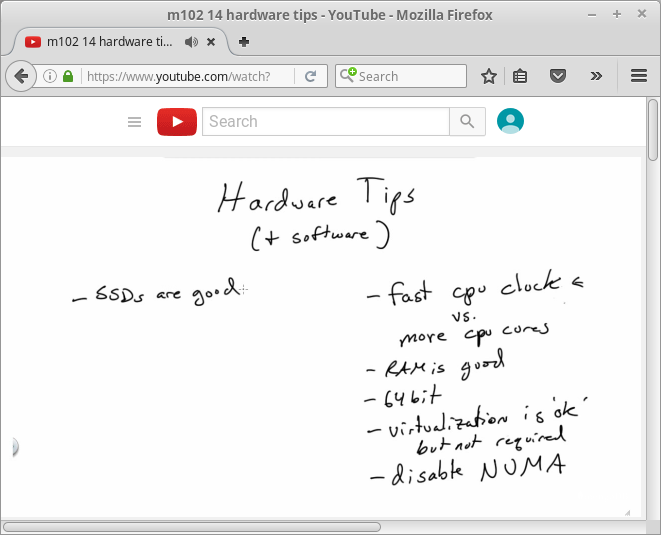 m102 14 hardware tips - YouTube - Mozilla Firefox
m102 14 hardware ti...
https://www.youtube.com/watch?
Search
Search
Hardware Tips
(+ software)
- SSDs are good
- fast cpu clock ←
vs.
more cpu cores
- RAM is good
- 64 bit
- virtualization is 'ok'
but not required
- disable NUMA